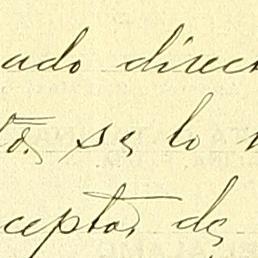 ado direc
to, se lo
ceptos de